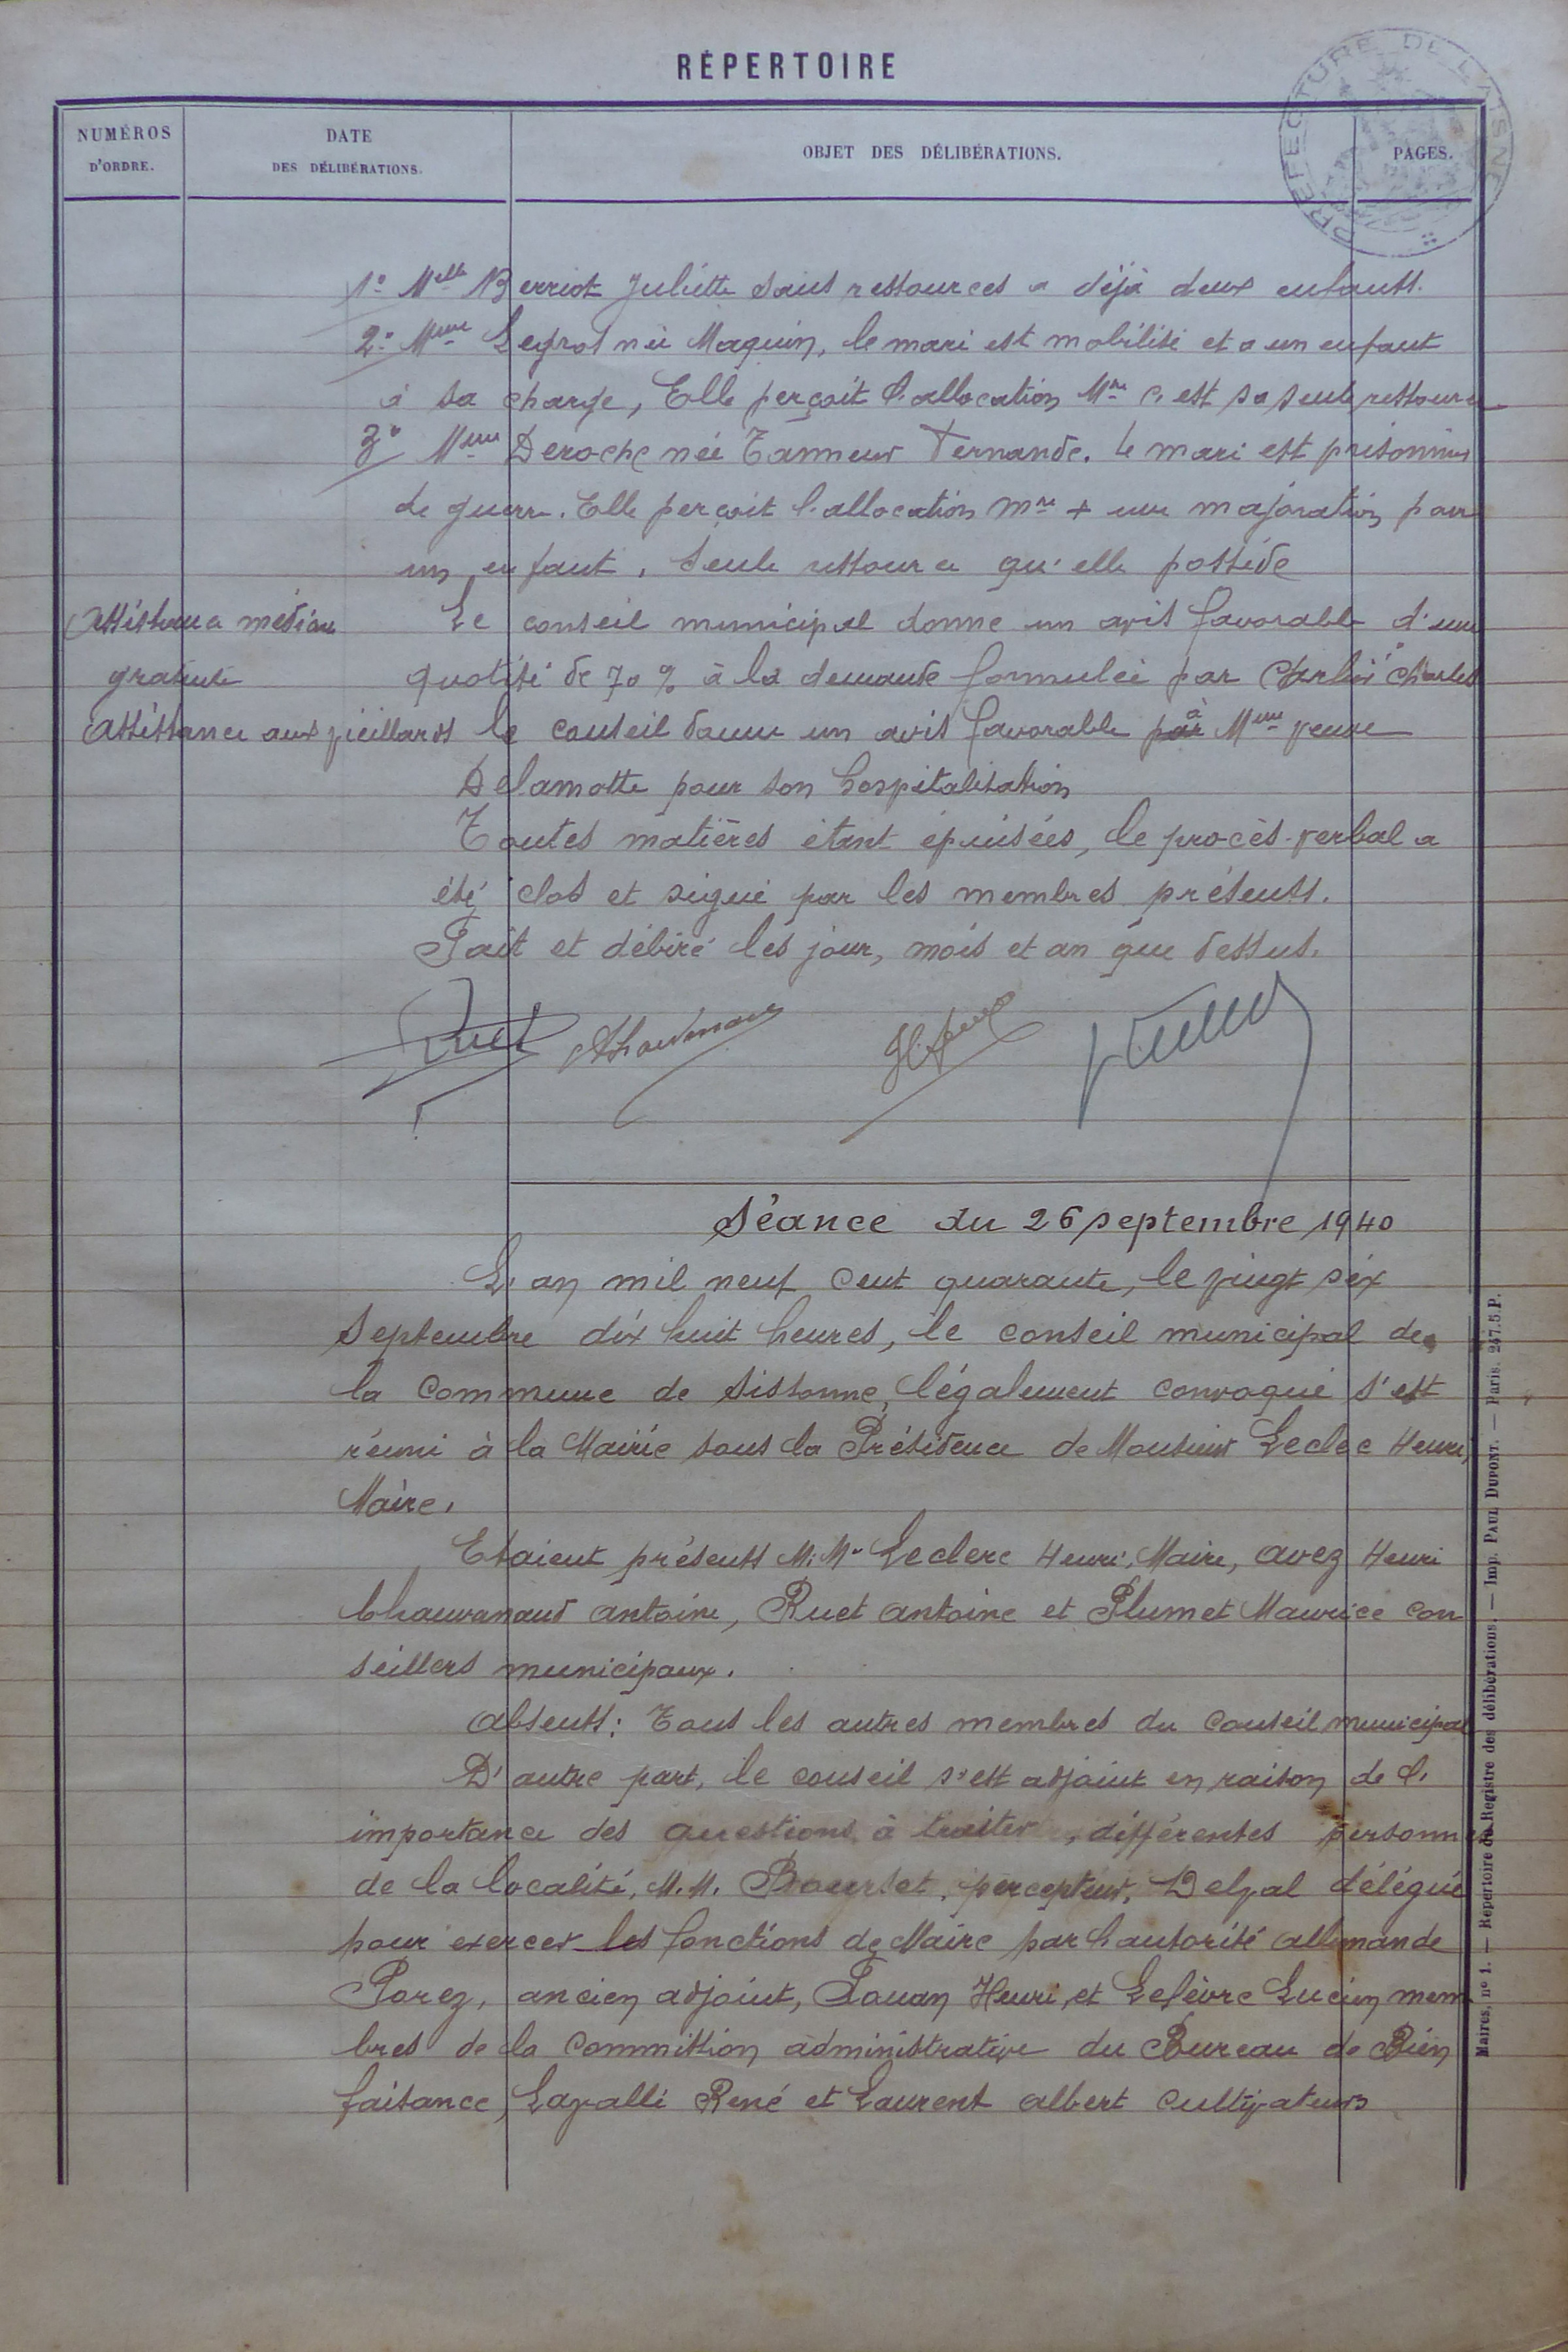 RÉPERTOIRE
PREFECTURE DE L'AISNE
NUMÉROS D'ORDRE.
DATE DES DÉLIBÉRATIONS.
OBJET DES DÉLIBÉRATIONS.
PAGES.
1° Melle Berriot Juliette sans ressources a déjà deux enfants.
2° Mme Legros née Maquin, le mari est mobilisé et a un enfant
à sa charge, Elle perçoit l'allocation Mre c'est sa seule ressource
3° Mme Deroche née Tanneur Fernande. le mari est prisonnier
de guerre. Elle perçoit l'allocation mre + une majoration pour
un enfant. Seule ressource qu'elle possède
Assistance médicale
gratuite
Le conseil municipal donne un avis favorable d'une
quotité de 70 % à la demande formulée par Charles
Assistance aux vieillards
le conseil donne un avis favorable par à Mme veuve
Delamotte pour son hospitalisation
Toutes matières étant épuisées, le procès-verbal a
été clos et signé par les membres présents.
Fait et débiré les jour, mois et an que dessus.
Ruet
Séance du 26 septembre 1940
L'an mil neuf cent quarante, le vingt six
septembre dix huit heures, le conseil municipal de
la commune de Sissonne, légalement convoqué s'est
réuni à la Mairie sous la Présidence de Monsieur Leclec Henri,
Maire.
Etaient présents M.M. Leclerc Henri, Maire, avez Henri
Chauvanaud antoine, Ruet antoine et Plumet Maurice con
seillers municipaux.
absents: Tous les autres membres du conseil municipal
D'autre part, le conseil s'est adjoint en raison de l'
importance des questions à traiter, différentes personnes
de la localité, M.M. percepteur, Delval délégué
pour exercer les fonctions de Maire par l'autorité allemande
Porez, ancien adjoint, Fouan Henri, et Lefèvre Lucien mem
bres de la commission administrative du Bureau de Bien
faisance, Lavalle René et Laurent albert cultivateurs
Maires, n° 1. — Répertoire du Registre des délibérations. — Imp. PAUL DUPONT. — Paris. 247.5.P.